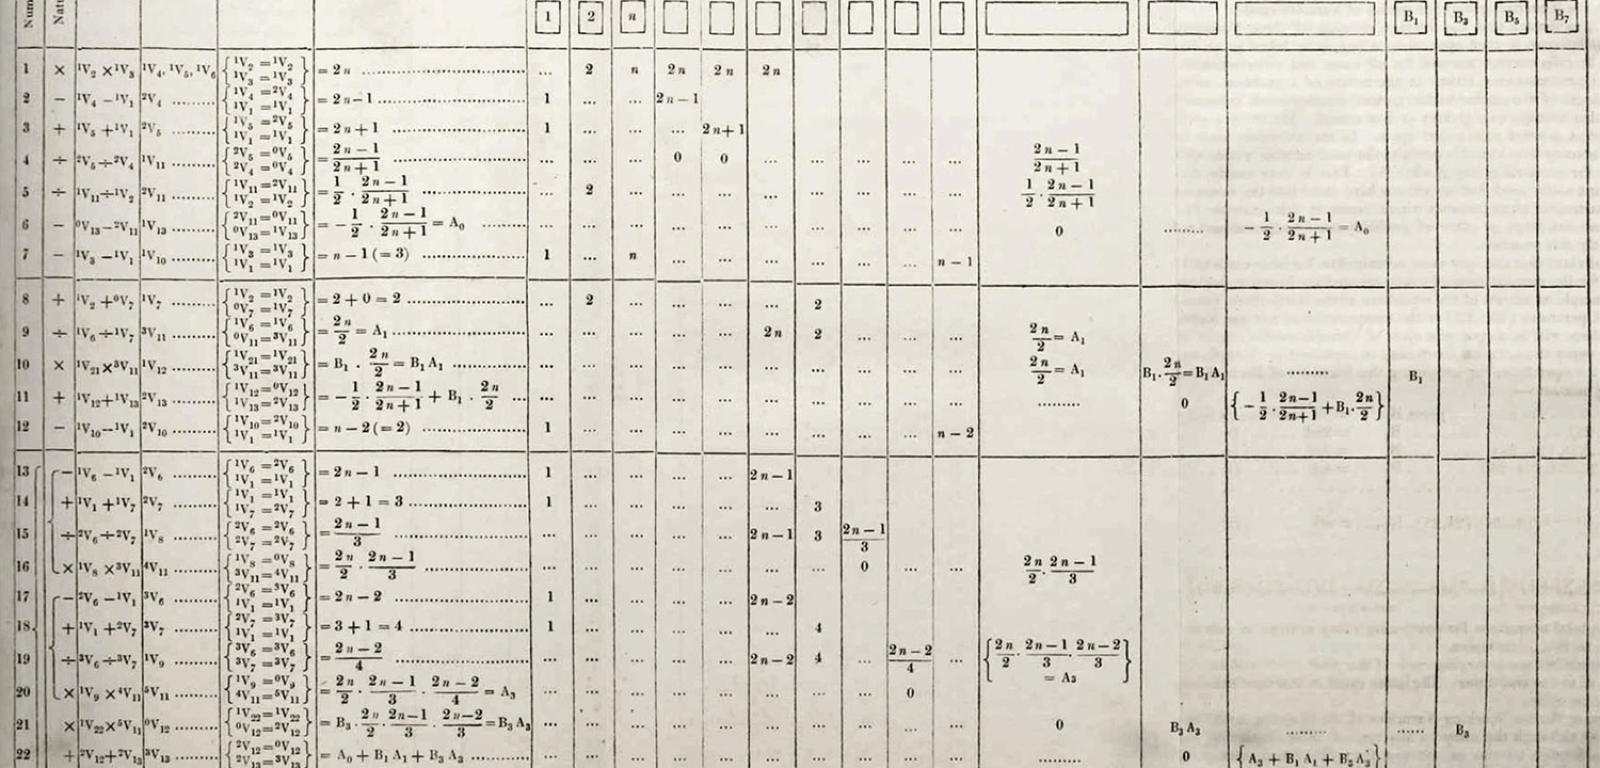 Num Nat 1 2 n B₁ B₃ B₅ B₇
1 × ¹V₂ ×¹V₃ ¹V₄, ¹V₅, ¹V₆ { ¹V₂ =¹V₂ ¹V₃ =¹V₃ } = 2n ... 2 n 2n 2n 2n
2 − ¹V₄ −¹V₁ ²V₄ { ¹V₄ =²V₄ ¹V₁ =¹V₁ } = 2n−1 1 ... ... 2n−1
3 + ¹V₅ +¹V₁ ²V₅ { ¹V₅ =²V₅ ¹V₁ =¹V₁ } = 2n+1 1 ... ... ... 2n+1
4 ÷ ²V₅÷²V₄ ¹V₁₁ { ²V₅ =⁰V₅ ²V₄ =⁰V₄ } = (2n−1)/(2n+1) ... ... ... 0 0 ... ... ... ... ... (2n−1)/(2n+1)
5 ÷ ¹V₁₁÷¹V₂ ²V₁₁ { ¹V₁₁=²V₁₁ ¹V₂ =¹V₂ } = 1/2 · (2n−1)/(2n+1) ... 2 ... ... ... ... ... ... ... ... 1/2 · (2n−1)/(2n+1)
6 − ⁰V₁₃−²V₁₁ ¹V₁₃ { ²V₁₁=⁰V₁₁ ⁰V₁₃=¹V₁₃ } = −1/2 · (2n−1)/(2n+1) = A₀ ... ... ... ... ... ... ... ... ... ... 0 ... −1/2 · (2n−1)/(2n+1) = A₀
7 − ¹V₃ −¹V₁ ¹V₁₀ { ¹V₃ =¹V₃ ¹V₁ =¹V₁ } = n − 1 (= 3) 1 ... n ... ... ... ... ... ... n − 1
8 + ¹V₂ +⁰V₇ ¹V₇ { ¹V₂ =¹V₂ ⁰V₇ =¹V₇ } = 2 + 0 = 2 ... 2 ... ... ... ... 2
9 ÷ ¹V₆ ÷¹V₇ ³V₁₁ { ¹V₆ =¹V₆ ⁰V₁₁=³V₁₁ } = 2n/2 = A₁ ... ... ... ... ... 2n 2 ... ... ... 2n/2 = A₁
10 × ¹V₂₁×³V₁₁ ¹V₁₂ { ¹V₂₁=¹V₂₁ ³V₁₁=³V₁₁ } = B₁ · 2n/2 = B₁ A₁ ... ... ... ... ... ... ... ... ... ... 2n/2 = A₁ B₁ · 2n/2 = B₁ A₁ ... B₁
11 + ¹V₁₂+¹V₁₃ ²V₁₃ { ¹V₁₂=⁰V₁₂ ¹V₁₃=²V₁₃ } = −1/2 · (2n−1)/(2n+1) + B₁ · 2n/2 ... ... ... ... ... ... ... ... ... ... ... 0 { −1/2 · (2n−1)/(2n+1) + B₁ · 2n/2 }
12 − ¹V₁₀−¹V₁ ²V₁₀ { ¹V₁₀=²V₁₀ ¹V₁ =¹V₁ } = n − 2 (= 2) 1 ... ... ... ... ... ... ... ... n − 2
13 − ¹V₆ −¹V₁ ²V₆ { ¹V₆ =²V₆ ¹V₁ =¹V₁ } = 2n − 1 1 ... ... ... ... 2n−1
14 + ¹V₁ +¹V₇ ²V₇ { ¹V₁ =¹V₁ ¹V₇ =²V₇ } = 2 + 1 = 3 1 ... ... ... ... ... 3
15 ÷ ²V₆÷²V₇ ¹V₈ { ²V₆ =²V₆ ²V₇ =²V₇ } = (2n−1)/3 ... ... ... ... ... 2n−1 3 (2n−1)/3
16 × ¹V₈ ×³V₁₁ ⁴V₁₁ { ¹V₈ =⁰V₈ ³V₁₁=⁴V₁₁ } = 2n/2 · (2n−1)/3 ... ... ... ... ... ... ... 0 ... ... 2n/2 · (2n−1)/3
17 − ²V₆ −¹V₁ ³V₆ { ²V₆ =³V₆ ¹V₁ =¹V₁ } = 2n − 2 1 ... ... ... ... 2n−2
18 + ¹V₁ +²V₇ ³V₇ { ²V₇ =³V₇ ¹V₁ =¹V₁ } = 3 + 1 = 4 1 ... ... ... ... ... 4
19 ÷ ³V₆ ÷³V₇ ¹V₉ { ³V₆ =³V₆ ³V₇ =³V₇ } = (2n−2)/4 ... ... ... ... ... 2n−2 4 ... (2n−2)/4 ... { 2n/2 · (2n−1)/3 · (2n−2)/3 = A₃ }
20 × ¹V₉ ×⁴V₁₁ ⁵V₁₁ { ¹V₉ =⁰V₉ ⁴V₁₁=⁵V₁₁ } = 2n/2 · (2n−1)/3 · (2n−2)/4 = A₃ ... ... ... ... ... ... ... ... 0
21 × ¹V₂₂×⁵V₁₁ ⁰V₁₂ { ¹V₂₂=¹V₂₂ ⁰V₁₂=²V₁₂ } = B₃ · 2n/2 · (2n−1)/3 · (2n−2)/3 = B₃ A₃ ... ... ... ... ... ... ... ... ... ... 0 B₃ A₃ ... ... B₃
22 + ²V₁₂+²V₁₃ ³V₁₃ { ²V₁₂=⁰V₁₂ ²V₁₃=³V₁₃ } = A₀ + B₁ A₁ + B₃ A₃ ... ... ... ... ... ... ... ... ... ... ... 0 { A₃ + B₁ A₁ + B₃ A₃ }